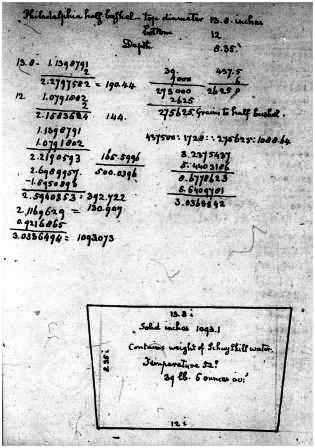 Philadelphia half bushel - top diameter 13.8 inches
bottom 12
Depth 8.35
13.8 - 1.1398791
2
2.2797582 = 190.44
12 1.0791802
2
2.1583624 144.
1.1398791
1.0791802
2.2190593 165.5996
2.6989957 500.0396
2.5940853 = 392.722
2.1169629 = 130.907
0.9216865
3.0386494 = 1093.073
39. 437.5
7000 6
273000 2625.0
2625
275625 Grains to half bushel.
437500 : 1728 :: 275625 : 1088.64
3.2375437
5.4403186
8.6778623
5.6409781
3.0368842
13.8 i
Solid inches 1093.1
Contains weight of Schuylkill water.
Temperature 52°
39 lb. 6 ounces av.
8.35 i
12 i